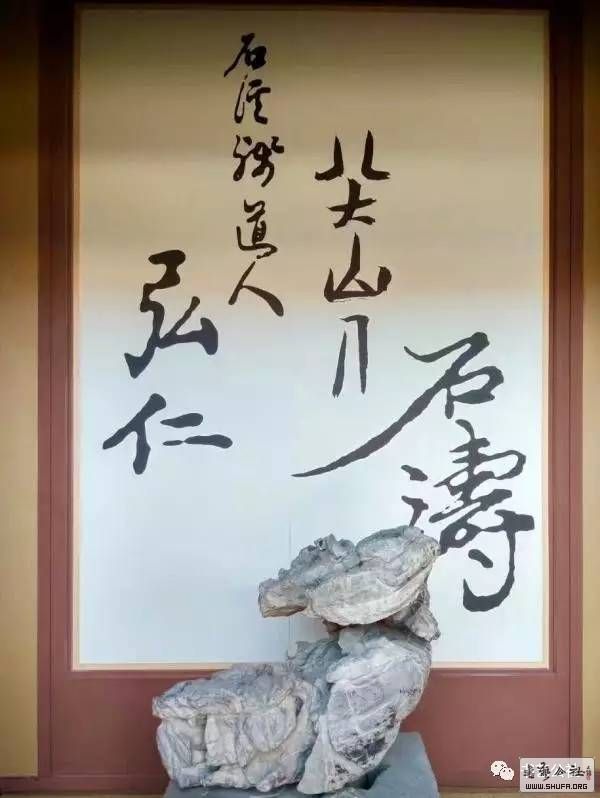 石濤
八大山人
石溪殘道人
弘仁
公社
WWW.SHUFA.ORG